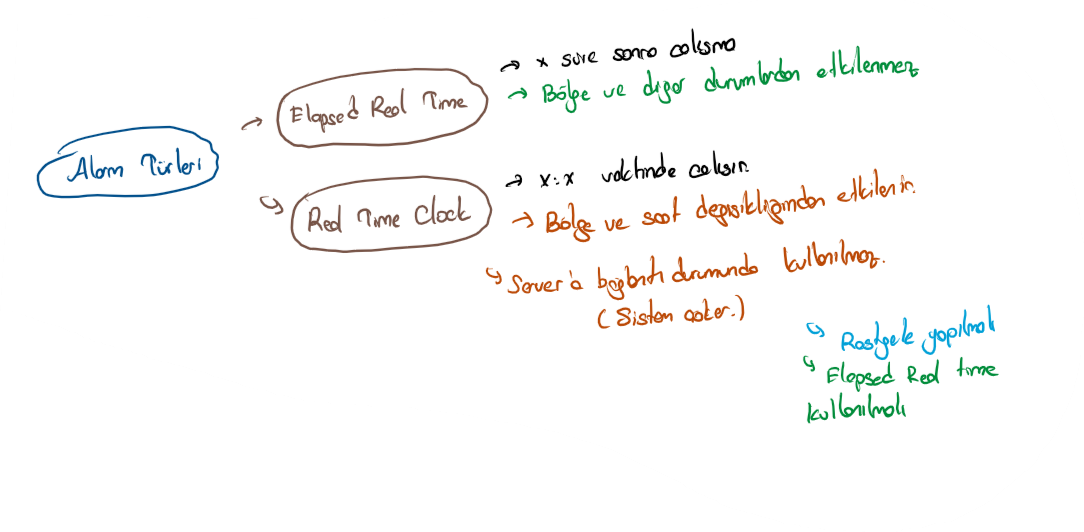 Alarm Türleri
→ Elapsed Real Time
→ x süre sonra çalışma
→ Bölge ve diğer durumlardan etkilenmez
↳ Real Time Clock
→ x:x vaktinde çalışır.
→ Bölge ve saat değişikliğinden etkilenir.
↳ Server'a bağlantı durumunda kullanılmaz.
(Sistem çöker.)
↳ Rastgele yapılmalı
↳ Elapsed Real time
kullanılmalı